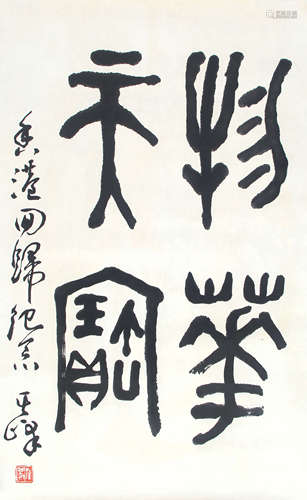 物華
天寶
香港回歸紀念 其峰